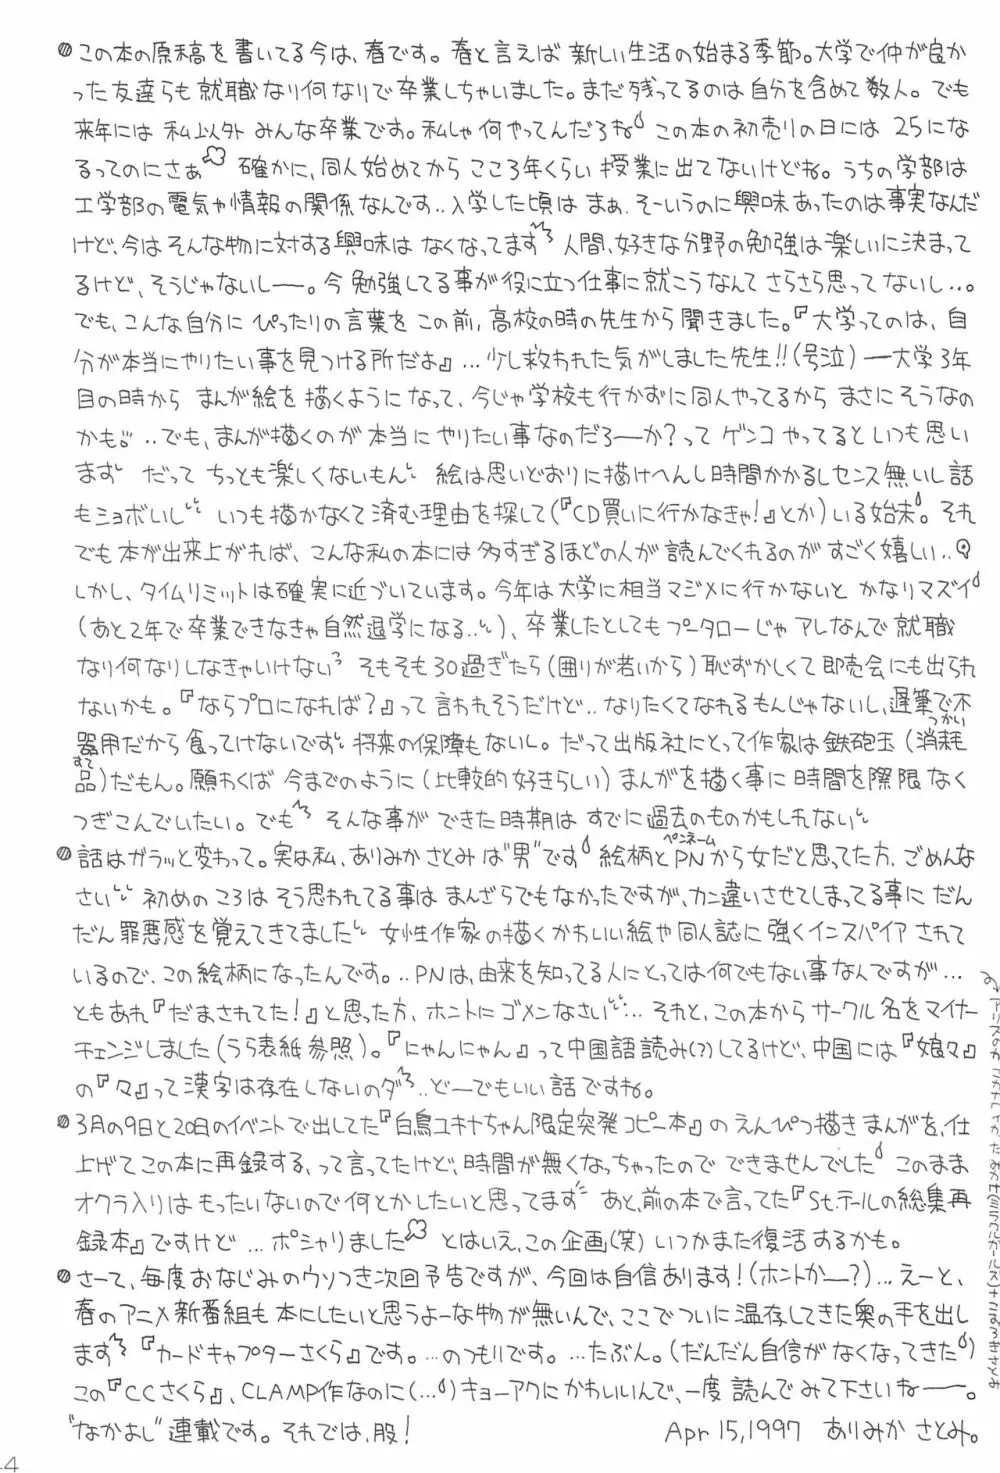 ◎この本の原稿を書いてる今は、春です。春と言えば 新しい生活の始まる季節。大学で仲が良か
った友達らも 就職なり何なりで卒業しちゃいました。まだ残ってるのは自分を含めて数人。でも
来年には 私以外 みんな卒業です。私しゃ何やってんだろね この本の初売りの日には 25にな
るってのにさぁ 確かに、同人始めてから ここ3年くらい 授業に出てないけどね。うちの学部は
工学部の電気や情報の関係なんです‥入学した頃は まぁ、そーいうのに興味あったのは事実なんだ
けど、今はそんな物に対する興味は なくなってます 人間、好きな分野の勉強は楽しいに決まって
るけど、そうじゃないしー。今 勉強してる事が役に立つ仕事に就こうなんて さらさら思ってないし…。
でも、こんな自分に ぴったりの言葉を この前、高校の時の先生から聞きました。『大学ってのは、自
分が本当にやりたい事を見つける所だよ』…少し救われた気がしました先生!!(号泣) ―大学3年
目の時から まんが絵を 描くようになって、今じゃ学校も行かずに同人やってるから まさにそうなの
かも‥でも、まんが描くのが 本当に やりたい事なのだろーか?って ゲンコ やってると いつも思い
ます だって ちっとも楽しくないもん 絵は思いどおりに描けへんし時間かかるしセンス無いし話
もショボいし いつも描かなくて済む理由を探して(『CD買いに行かなきゃ!』とか)いる始末。それ
でも本が出来上がれば、こんな私の本には多すぎるほどの人が 読んでくれるのが すごく嬉しい‥
しかし、タイムリミットは確実に近づいています。今年は大学に相当マジメに行かないと かなりマズイ
(あと2年で卒業できなきゃ自然退学になる‥)、卒業したとしてもプータローじゃ アレなんで就職
なり何なりしなきゃいけない そもそも30過ぎたら(囲りが若いから)恥ずかしくて即売会にも出られ
ないかも。『ならプロになれば?』って言われそうだけど‥なりたくてなれるもんじゃないし、遅筆で不
器用だから食ってけないです 将来の保障もないし。だって出版社にとって作家は鉄砲玉(消耗
つかい
品)だもん。願わくば 今までのように(比較的好きらしい)まんがを描く事に 時間を際限なく
すて
つぎこんでいたい。でも そんな事が できた時期は すでに過去のものかもしれない
◎話はガラッと変わって。実は私、ありみか さとみ は"男"です 絵柄とPNから女だと思ってた方、ごめんな
ペンネーム
さい 初めの ころは そう思われてる事は まんざらでもなかったですが、カン違いさせてしまってる事に だん
だん罪悪感を覚えてきてました 女性作家の描くかわいい絵や同人誌に強くインスパイア されて
いるので、この絵柄になったんです。‥PNは、由来を知ってる人にとっては何でもない事なんですが…
ともあれ『だまされてた!』と思った方、ホントにゴメンなさい… それと、この本からサークル名をマイナー
チェンジしました(うら表紙参照)。『にゃんにゃん』って中国語読み(?)してるけど、中国には『娘々』
の『々』って漢字は存在しないのダ‥どーでもいい話ですね。
◎3月の9日と20日のイベントで出してた『白鳥ユキナちゃん限定突発コピー本』のえんぴつ描きまんがを、仕
上げてこの本に再録する、って言ってたけど、時間が無くなっちゃったので できませんでした このまま
オクラ入りは もったいないので何とかしたいと思ってます あと、前の本で言ってた『St.テールの総集再
録本』ですけど…ポシャりました とはいえ、この企画(笑) いつかまた復活するかも。
◎さーて、毎度おなじみのウソつき次回予告ですが、今回は自信あります!(ホントかー?)…えーと、
春のアニメ新番組も 本にしたいと思うよーな物が無いんで、ここでついに温存してきた奥の手を出し
ます 『カードキャプターさくら』です。…のつもりです。…たぶん。(だんだん自信がなくなってきた)
この『CCさくら』、CLAMP作なのに(…)キョーアクにかわいいんで、一度読んでみて下さいねー。
"なかよし"連載です。それでは、股!
Apr 15,1997 ありみか さとみ。